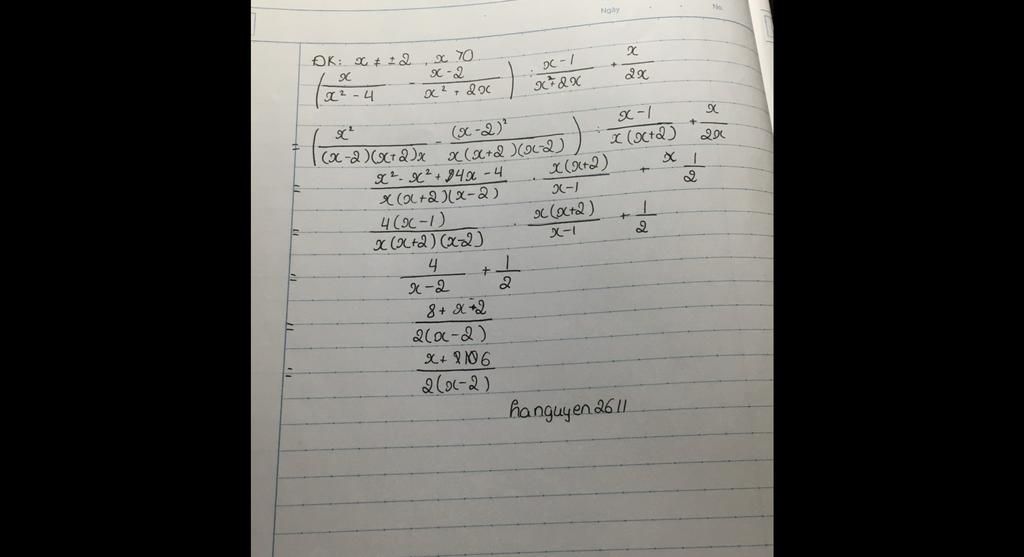 Ngày No.
ĐK: x ≠ ±2 , x > 0
( x/(x² - 4) - (x-2)/(x² + 2x) ) : (x-1)/(x²+2x) + x/(2x)
= ( x²/((x-2)(x+2)x) - (x-2)²/(x(x+2)(x-2)) ) : (x-1)/(x(x+2)) + x/(2x)
= (x² - x² + 4x - 4)/(x(x+2)(x-2)) · (x(x+2))/(x-1) + 1/2
= (4(x-1))/(x(x+2)(x-2)) · (x(x+2))/(x-1) + 1/2
= 4/(x-2) + 1/2
= (8 + x - 2)/(2(x-2))
= (x + 6)/(2(x-2))
hanguyen2611